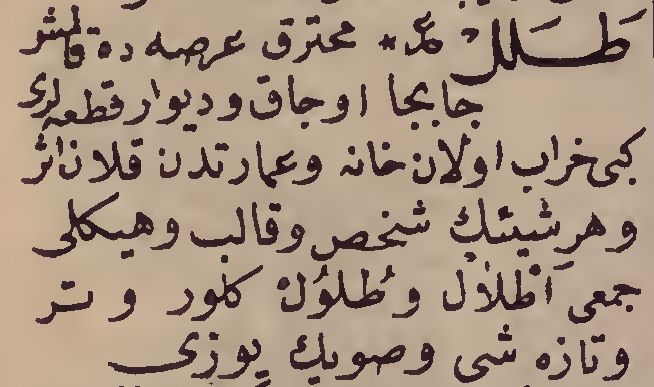 طَلَل * محترق عرصه ده قالمش
جابجا اوجاق و ديوار قطعه لرى
كبى خراب اولان خانه و عمارتدن قلان اثر
و هر شيئڭ شخص و قالب و هيكلى
جمعى اَطْلَال و طُلُول كلور و تر
و تازه شى و صويڭ يوزى